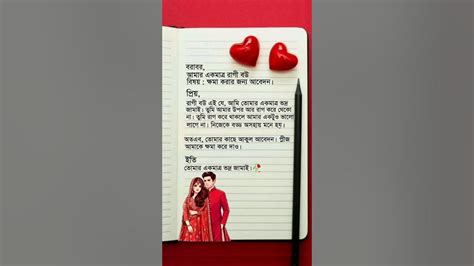 বরাবর,
আমার একমাত্র রাগী বউ
বিষয় : ক্ষমা করার জন্য আবেদন।
প্রিয়,
রাগী বউ এই যে, আমি তোমার একমাত্র ভদ্র
জামাই। তুমি আমার উপর আর রাগ করে থেকো
না। তুমি রাগ করে থাকলে আমার একটুও ভালো
লাগে না। নিজেকে বড্ড অসহায় মনে হয়।
অতএব, তোমার কাছে আকুল আবেদন। প্লীজ
আমাকে ক্ষমা করে দাও।
ইতি
তোমার একমাত্র ভদ্র জামাই।🥀